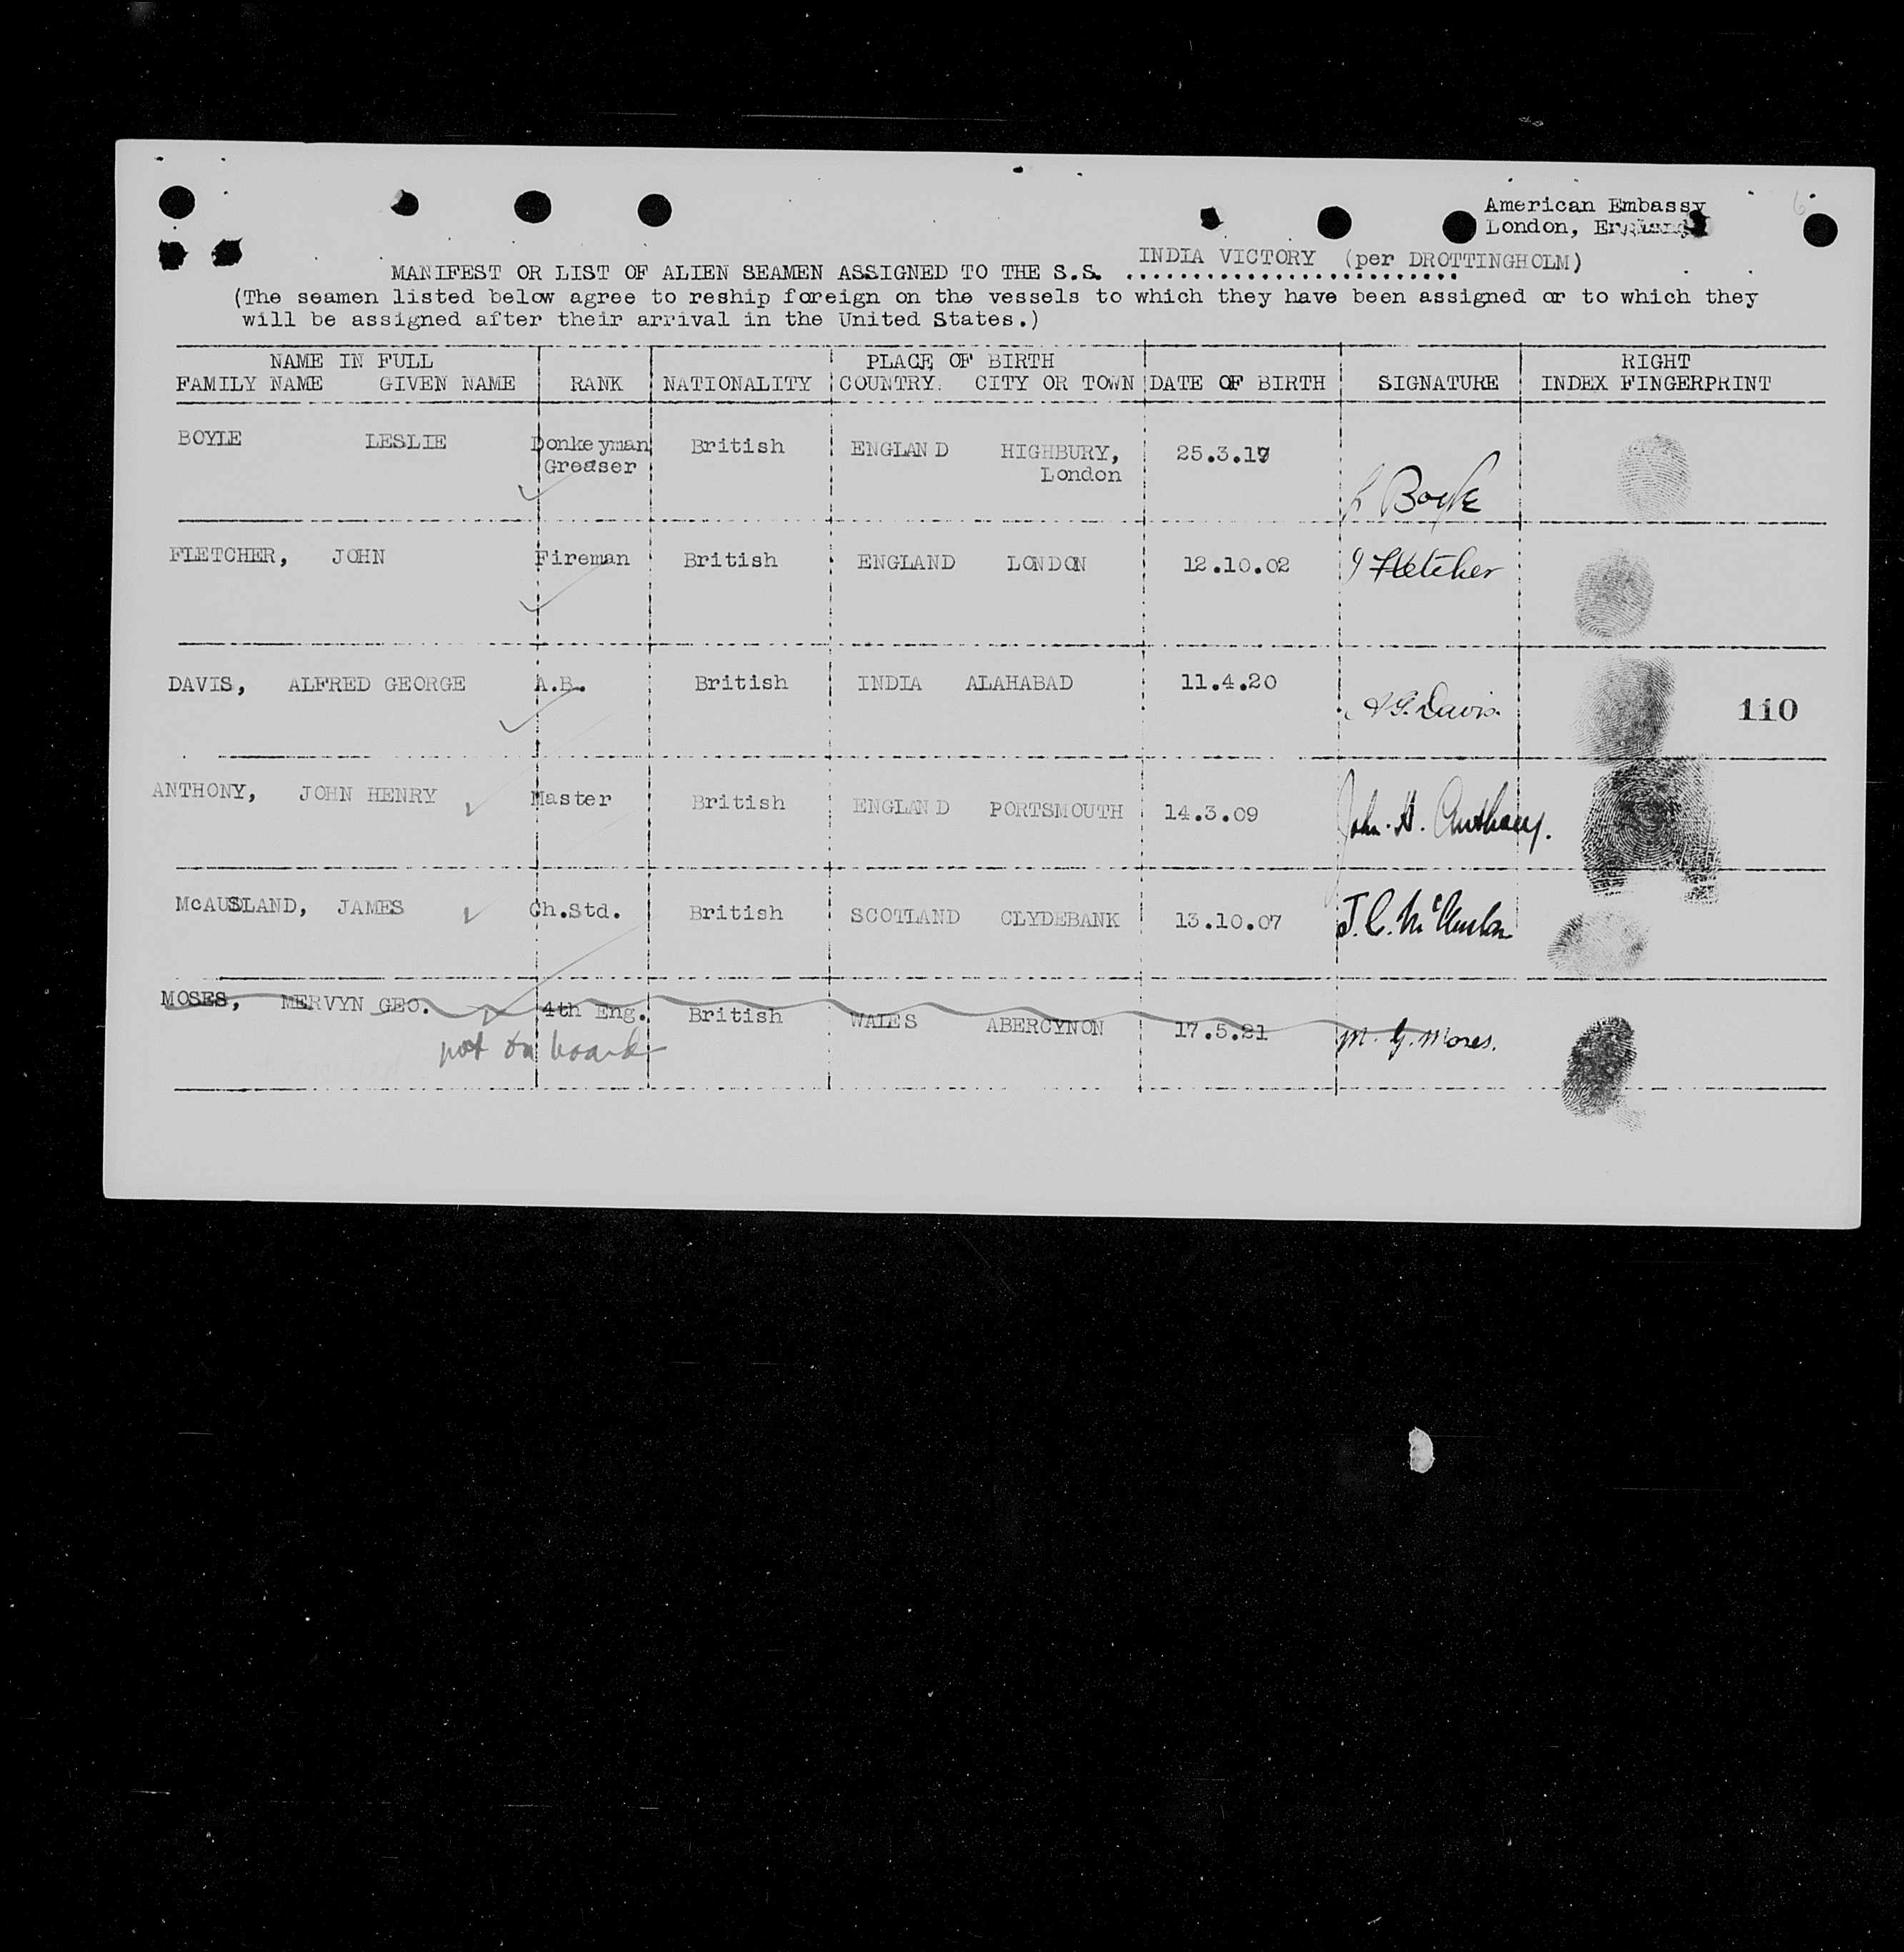 6
American Embassy
London, England
INDIA VICTORY (per DROTTINGHOLM)
MANIFEST OR LIST OF ALIEN SEAMEN ASSIGNED TO THE S.S. .........................
(The seamen listed below agree to reship foreign on the vessels to which they have been assigned or to which they
will be assigned after their arrival in the United States.)
NAME IN FULL PLACE OF BIRTH RIGHT
FAMILY NAME GIVEN NAME RANK NATIONALITY COUNTRY. CITY OR TOWN DATE OF BIRTH SIGNATURE INDEX FINGERPRINT
BOYLE LESLIE Donkeyman British ENGLAND HIGHBURY, 25.3.17
Greaser London
L Boyle
FLETCHER, JOHN Fireman British ENGLAND LONDON 12.10.02 J Fletcher
DAVIS, ALFRED GEORGE A.B. British INDIA ALAHABAD 11.4.20 A G. Davis. 110
ANTHONY, JOHN HENRY Master British ENGLAND PORTSMOUTH 14.3.09 John. H. Anthony.
McAUSLAND, JAMES Ch.Std. British SCOTLAND CLYDEBANK 13.10.07 J. C. Mc
MOSES, MERVYN GEO. 4th Eng. British WALES ABERCYNON 17.5.21 M. G. Moses.
not on board